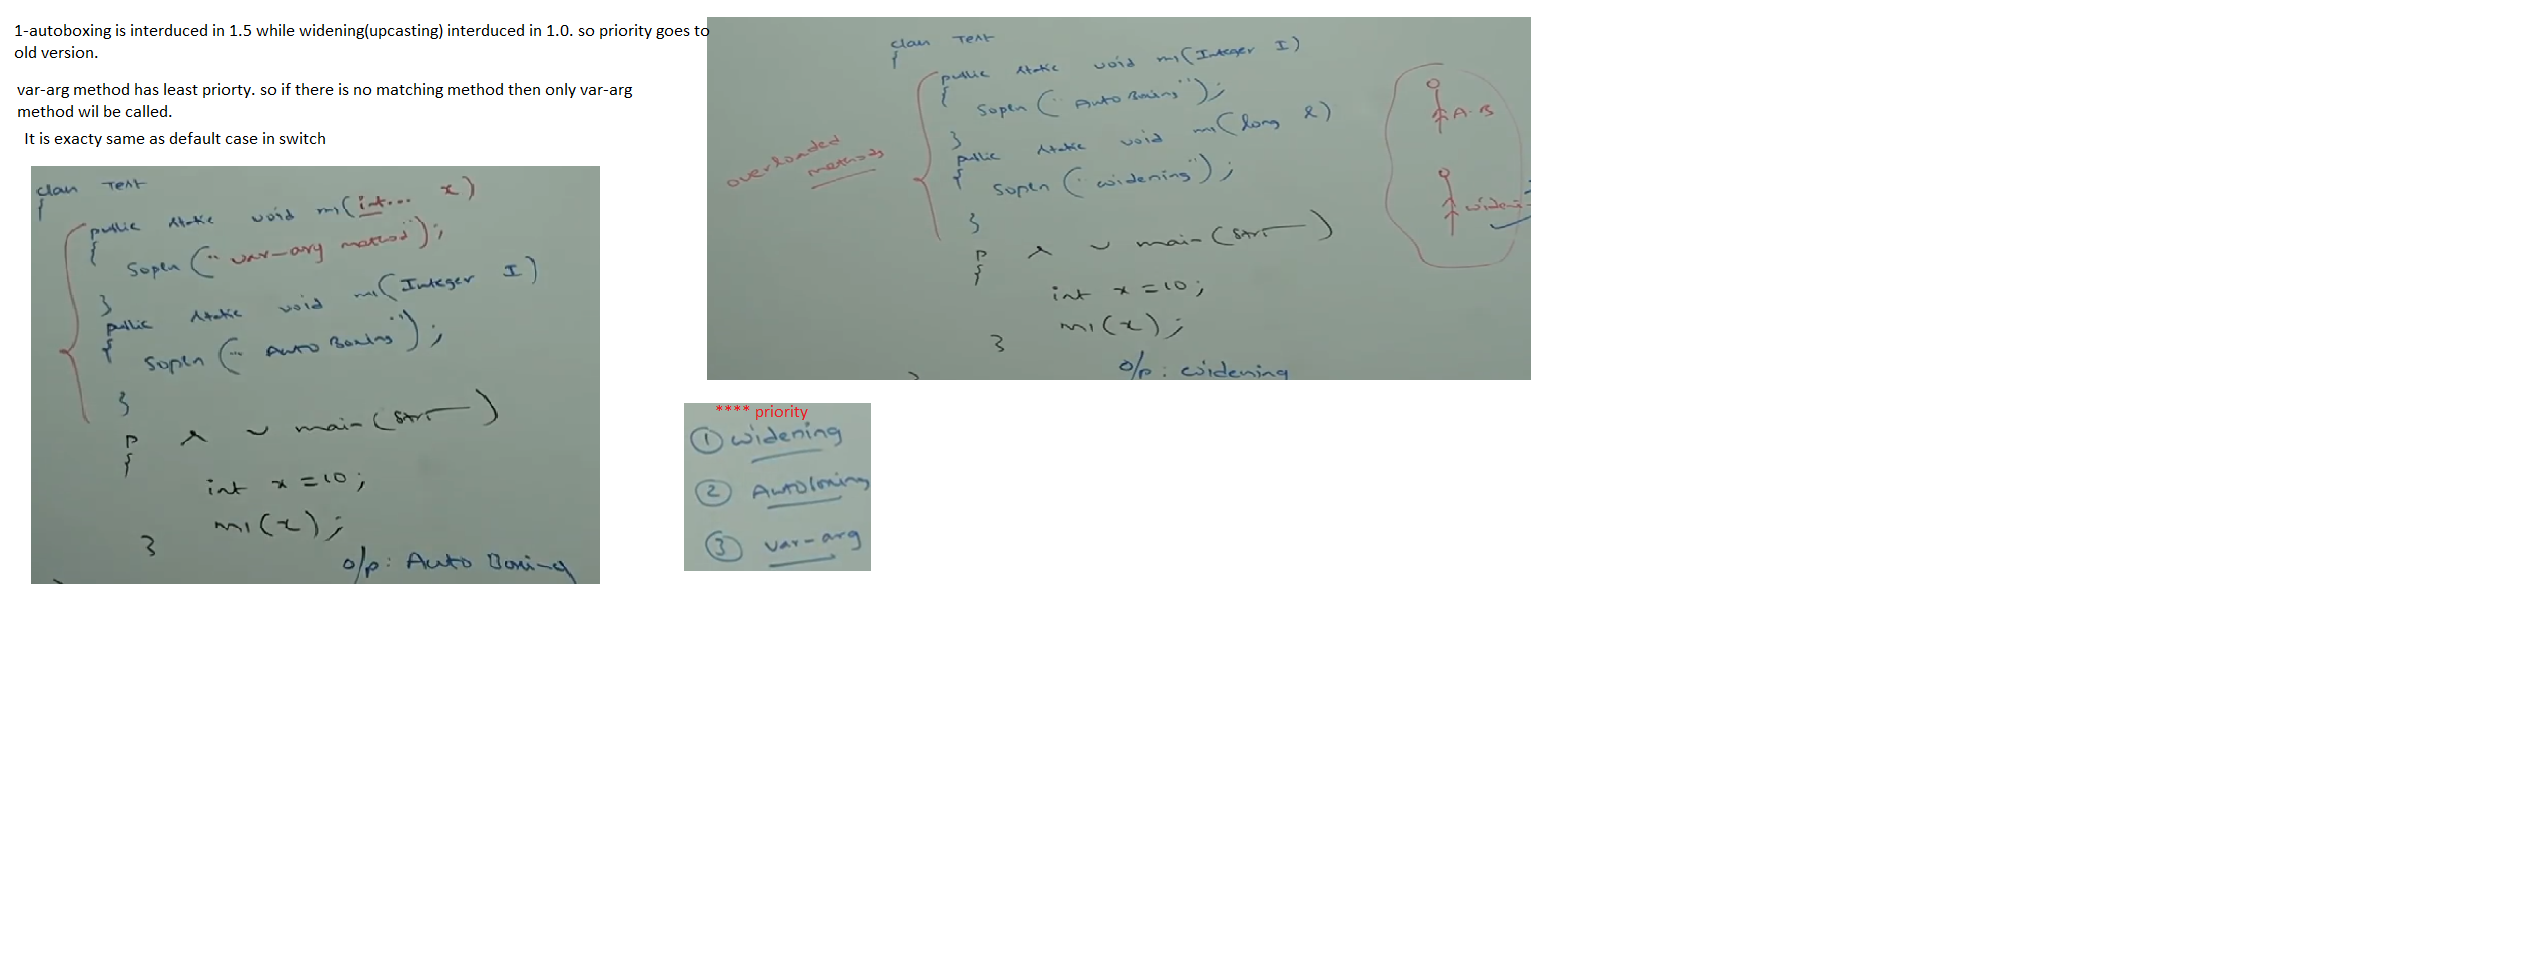 1-autoboxing is interduced in 1.5 while widening(upcasting) interduced in 1.0. so priority goes to
old version.
var-arg method has least priorty. so if there is no matching method then only var-arg
method wil be called.
It is exacty same as default case in switch
class Test
{
public static void m1(int... x)
{
Sopln ("var-arg method");
}
public static void m1(Integer I)
{
Sopln ("Auto Boxing");
}
p s v main(String
{
int x = 10;
m1(x);
}
o/p: Auto Boxing
class Test
{
public static void m1(Integer I)
{
Sopln ("Auto Boxing");
}
public static void m1(long l)
{
Sopln ("widening");
}
p s v main(String
{
int x = 10;
m1(x);
}
o/p: widening
overloaded
methods
A.B
wideni
**** priority
1 widening
2 Autoboxing
3 var-arg